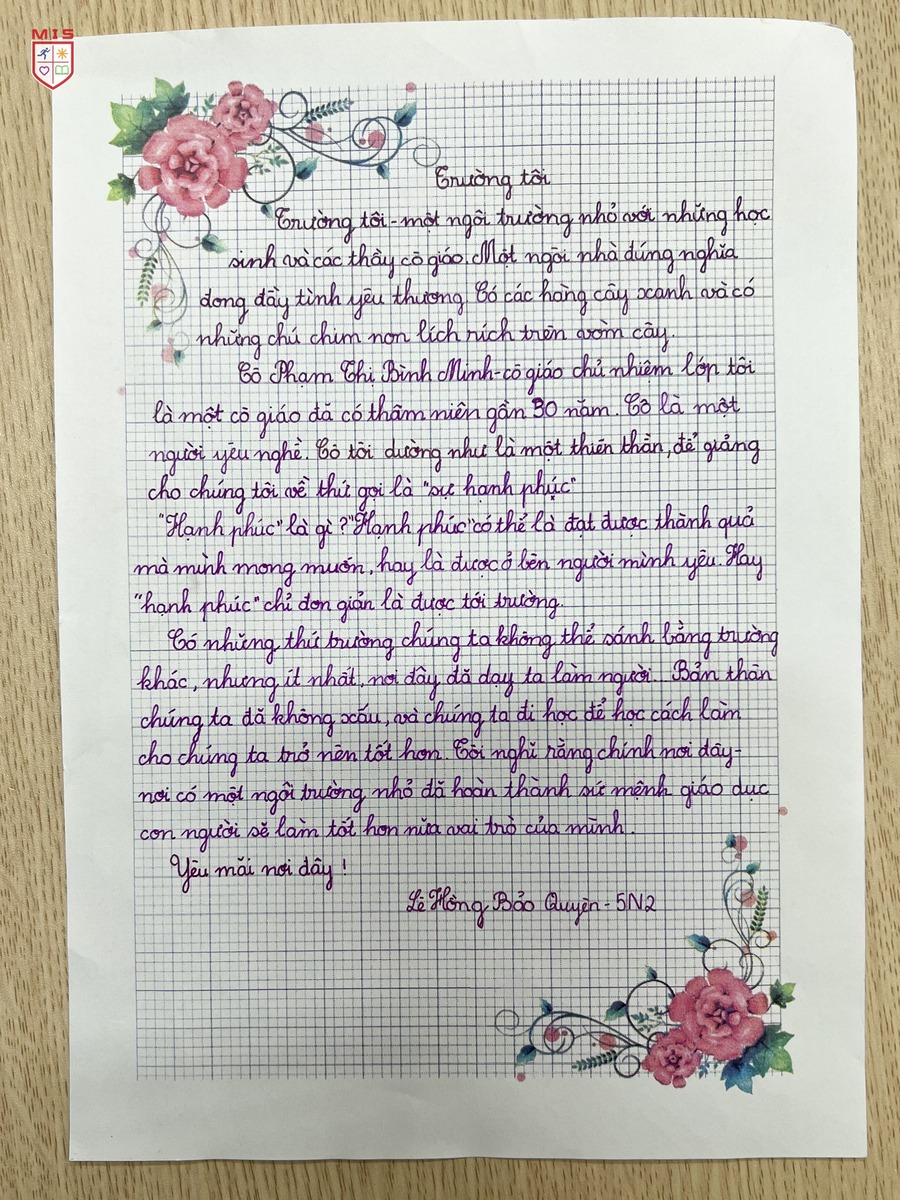 MIS
Trường tôi
Trường tôi - một ngôi trường nhỏ với những học
sinh và các thầy cô giáo. Một ngôi nhà đúng nghĩa
dong đầy tình yêu thương. Có các hàng cây xanh và có
những chú chim non lích rích trên vòm cây.
Cô Phạm Thị Bình Minh - cô giáo chủ nhiệm lớp tôi
là một cô giáo đã có thâm niên gần 30 năm. Cô là một
người yêu nghề. Cô tôi dường như là một thiên thần, để giảng
cho chúng tôi về thứ gọi là "sự hạnh phúc"
"Hạnh phúc" là gì? "Hạnh phúc" có thể là đạt được thành quả
mà mình mong muốn, hay là được ở bên người mình yêu. Hay
"hạnh phúc" chỉ đơn giản là được tới trường.
Có những thứ trường chúng ta không thể sánh bằng trường
khác, nhưng ít nhất, nơi đây đã dạy ta làm người. Bản thân
chúng ta đã không xấu, và chúng ta đi học để học cách làm
cho chúng ta trở nên tốt hơn. Tôi nghĩ rằng chính nơi đây -
nơi có một ngôi trường nhỏ đã hoàn thành sứ mệnh giáo dục
con người sẽ làm tốt hơn nữa vai trò của mình.
Yêu mãi nơi đây!
Lê Hồng Bảo Quyên - 5N2